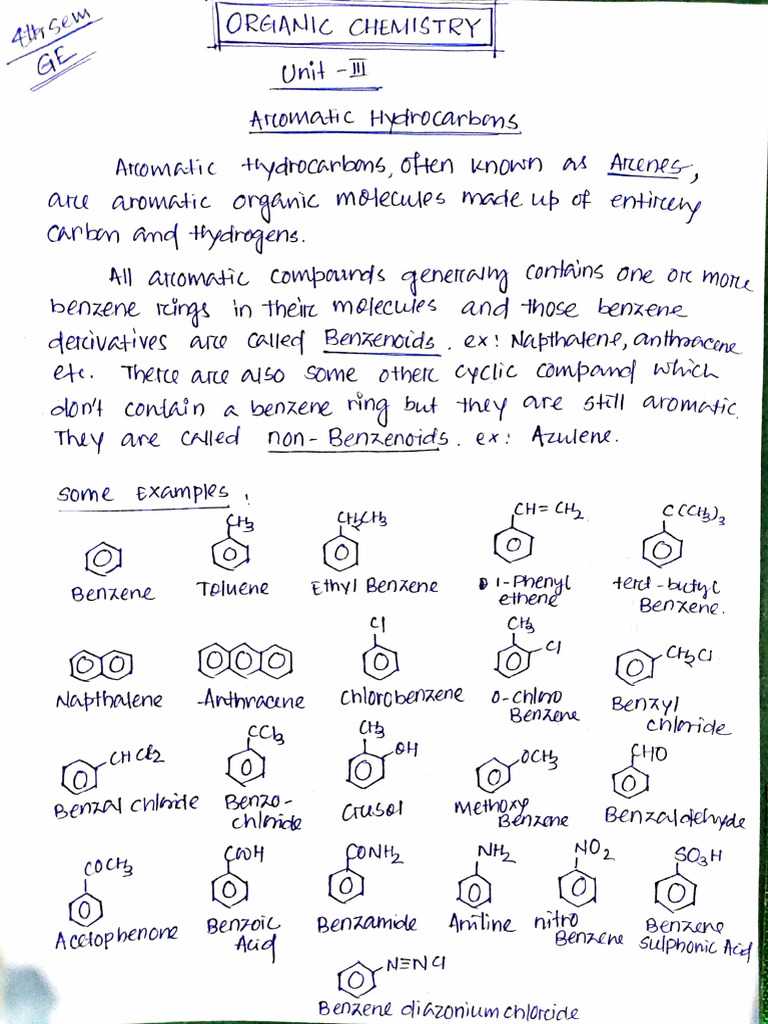 4th sem
GE
ORGANIC CHEMISTRY
Unit - III
Aromatic Hydrocarbons
Aromatic Hydrocarbons, often known as Arenes,
are aromatic organic molecules made up of entirely
carbon and Hydrogens.
All aromatic compounds generally contains one or more
benzene rings in their molecules and those benzene
derivatives are called Benzenoids. ex: Napthalene, anthracene
etc. There are also some other cyclic compand which
don't contain a benzene ring but they are still aromatic.
They are called non-Benzenoids. ex: Azulene.
Some Examples,
CH3 CH2CH3 CH=CH2 C(CH3)3
Benzene Toluene Ethyl Benzene 1-Phenyl ethene tert-butyl Benzene.
Cl CH3 Cl CH2Cl
Napthalene Anthracene Chlorobenzene o-chloro Benzene Benzyl chloride
CHCl2 CCl3 CH3 OH OCH3 CHO
Benzal chloride Benzo-chloride Crusol Methoxy Benzene Benzaldehyde
COCH3 COOH CONH2 NH2 NO2 SO3H
Acetophenone Benzoic Acid Benzamide Aniline nitro Benzene Benzene Sulphonic Acid
N≡NCl
Benzene diazonium chloride